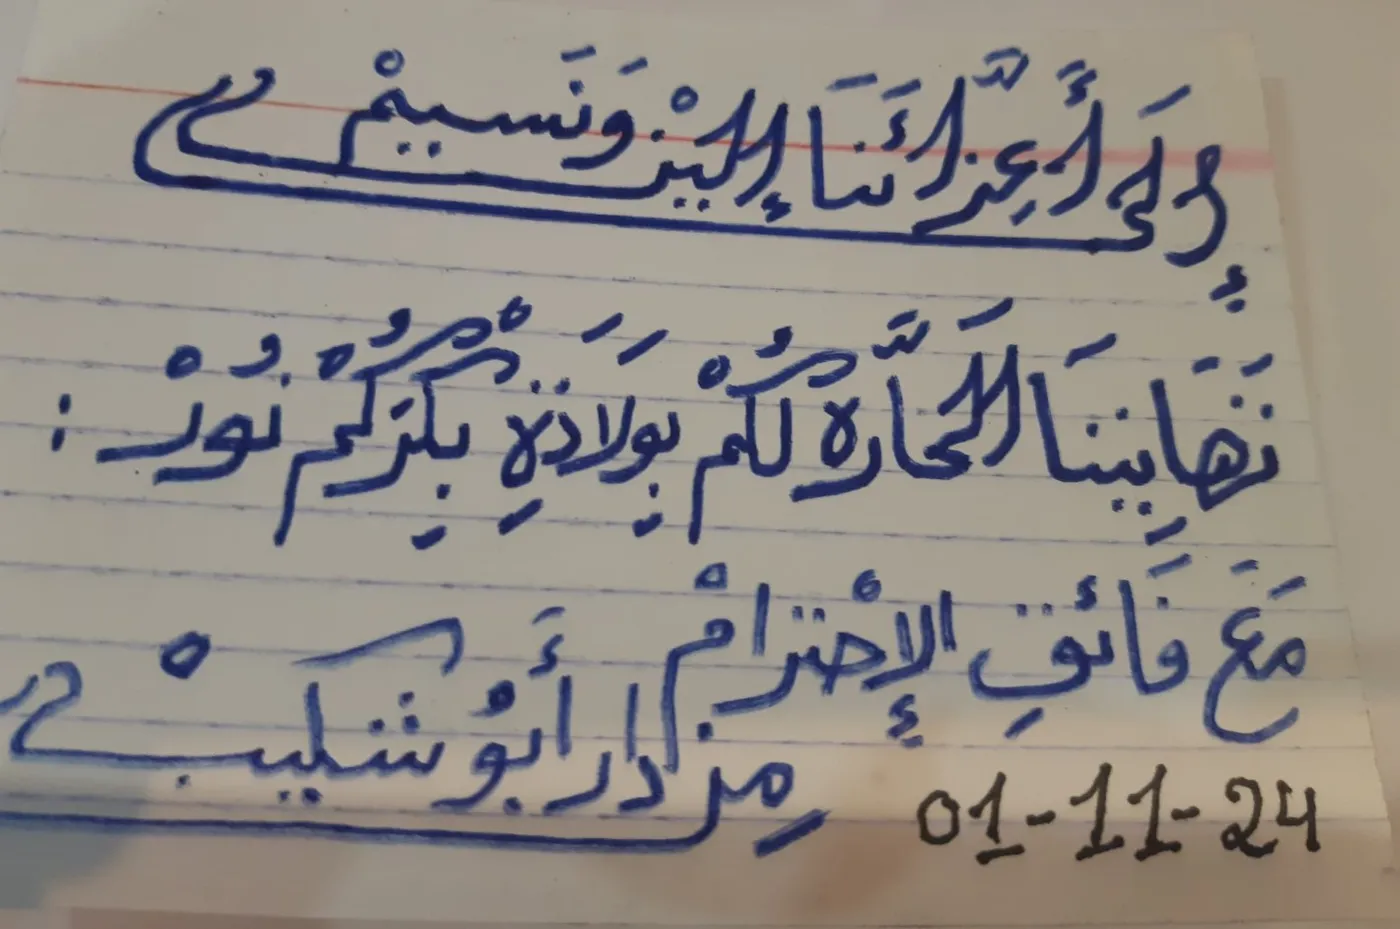 إِلَى أَعِزَّائَنَا إِلين وَنَسيمْ
تَهَانِينَا الحَارَّة لَكُمْ بِوِلَادَةِ بِكْرِكُمْ نُورْ :
مَعَ فَائقِ الإِحْترامْ
مِن دار أَبُو شكيبْ
01-11-24